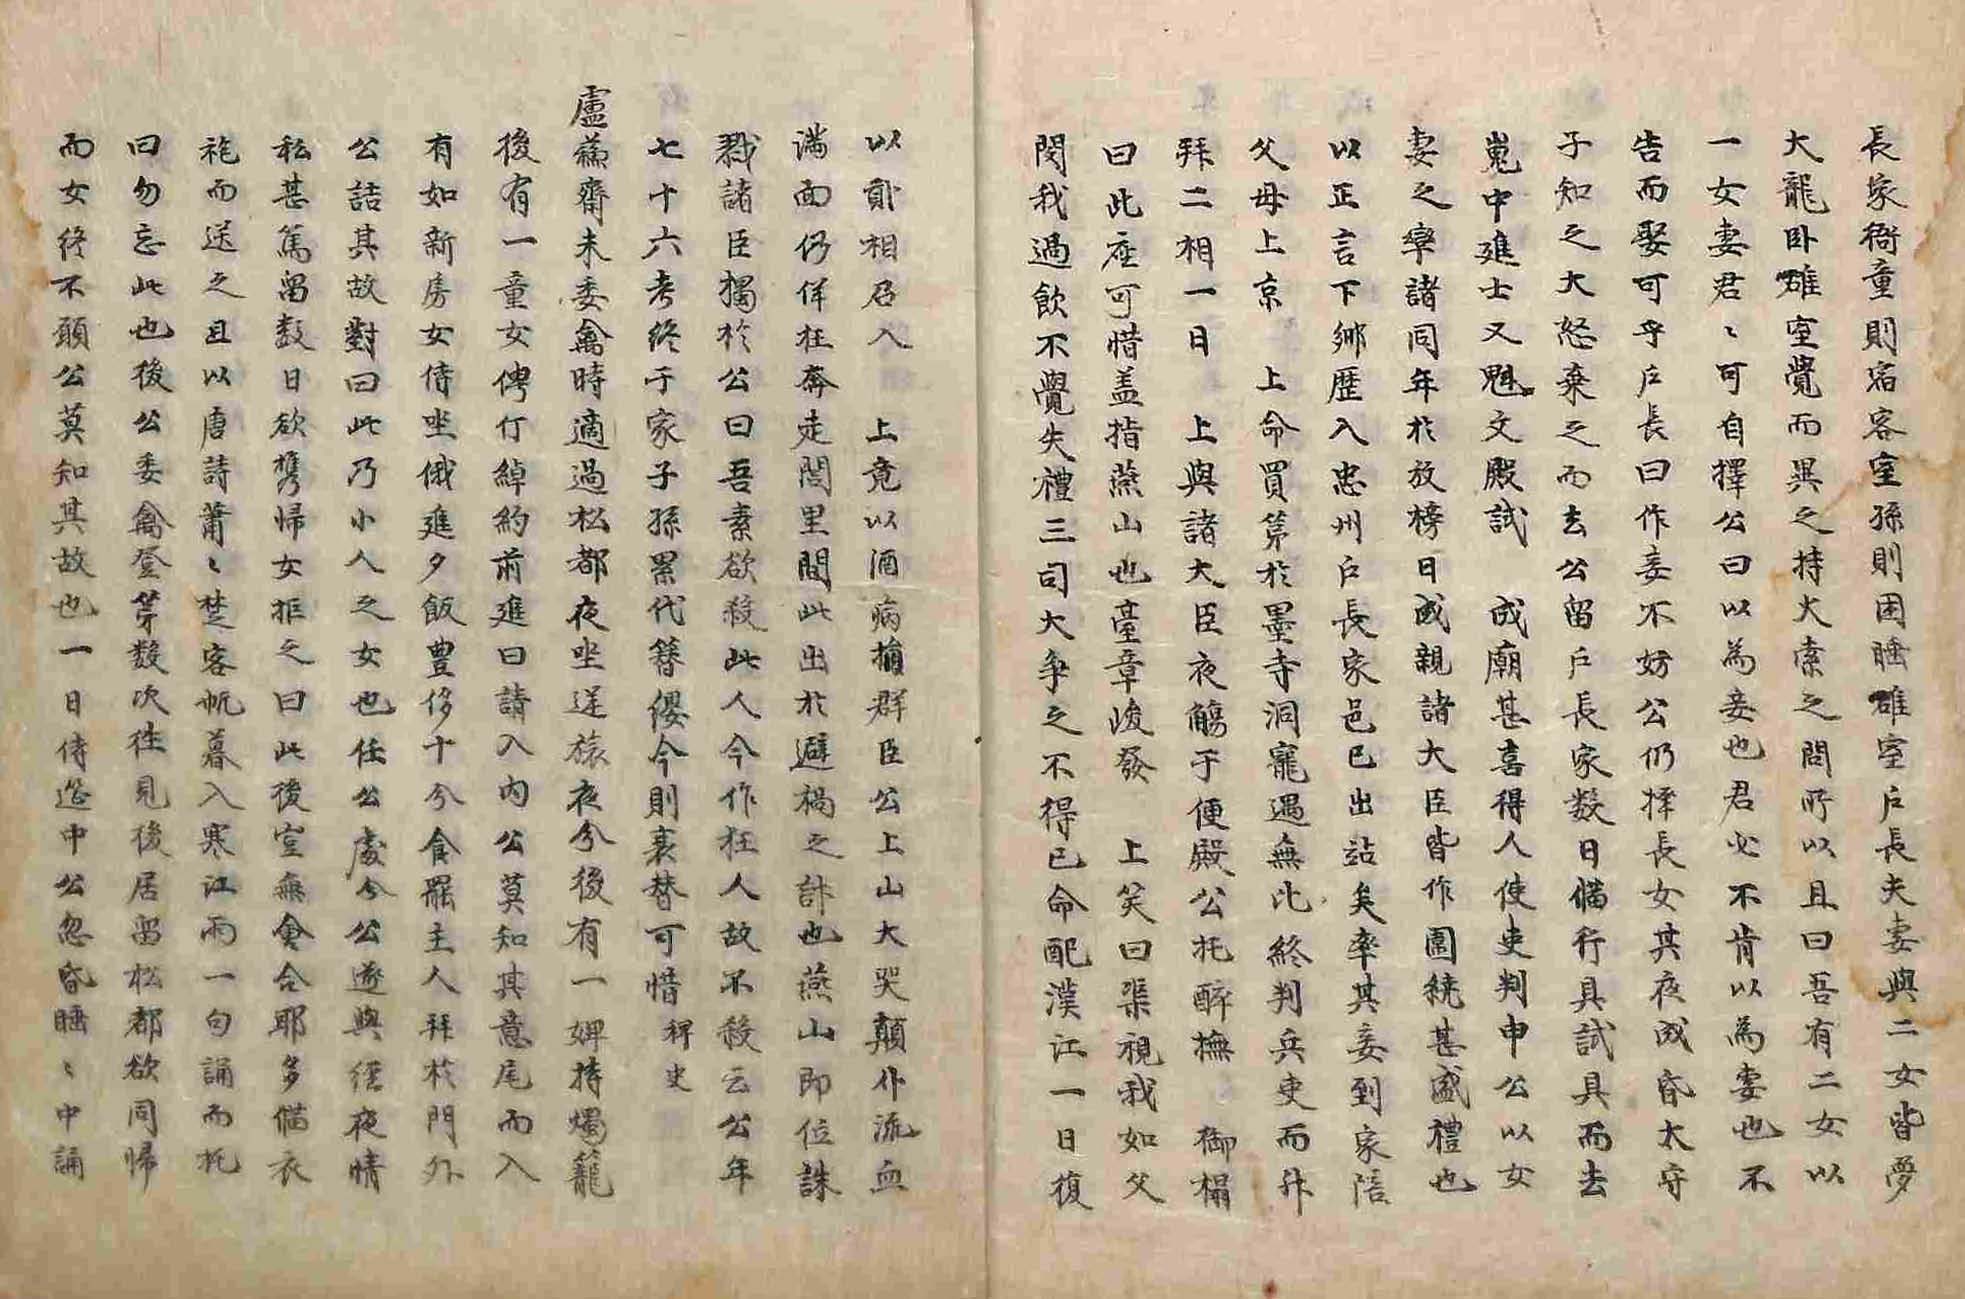 長家衙童則宿客室孫則困睡碓室戶長夫妻與二女皆夢
大龍卧碓室覺而異之持火索之問所以且曰吾有二女以
一女妻君〻可自擇公曰以為妾也君必不肯以為妻也不
告而娶可乎戶長曰作妾不妨公仍擇長女其夜成昏太守
子知之大怒棄之而去公留戶長家数日偹行具試具而去
嵬中進士又魁文殿試 成廟甚喜得人使吏判申公以女
妻之率諸同年於放榜日成親諸大臣皆作圍繞甚盛禮也
以正言下鄉歷入忠州戶長家邑已出站矣率其妾到家陪
父母上京 上命買第於墨寺洞寵遇無比終判兵吏而升
拜二相一日 上與諸大臣夜觴于便殿公托醉撫 御榻
曰此座可惜盖指燕山也臺章峻發 上笑曰渠視我如父
閔我過飲不覺失禮三司大争之不得已命配漢江一日復
以貳相召入 上竟以酒病損群臣公上山大哭顛仆流血
滿面仍佯狂奔走閭里間此出於避禍之計也燕山即位誅
戮諸臣獨於公曰吾素欲殺此人今作狂人故不殺云公年
七十六考終于家子孫累代簪纓今則衰替可惜 稗史
盧蘓齋未委禽時適過松都夜坐逆旅夜分後有一婢持燭籠
後有一童女俜仃綽約前進曰請入内公莫知其意尾而入
有如新房女侍坐俄進夕飯豊侈十分食罷主人拜於門外
公詰其故對曰此乃小人之女也任公處分公遂與經夜情
私甚篤留数日欲携帰女拒之曰此後豈無會合耶多偹衣
袍而送之且以唐詩蕭〻楚客帆暮入寒江雨一句誦而托
曰勿忘此也後公委禽登第数次徃見後居留松都欲同帰
而女終不願公莫知其故也一日侍筵中公忽昏睡〻中誦